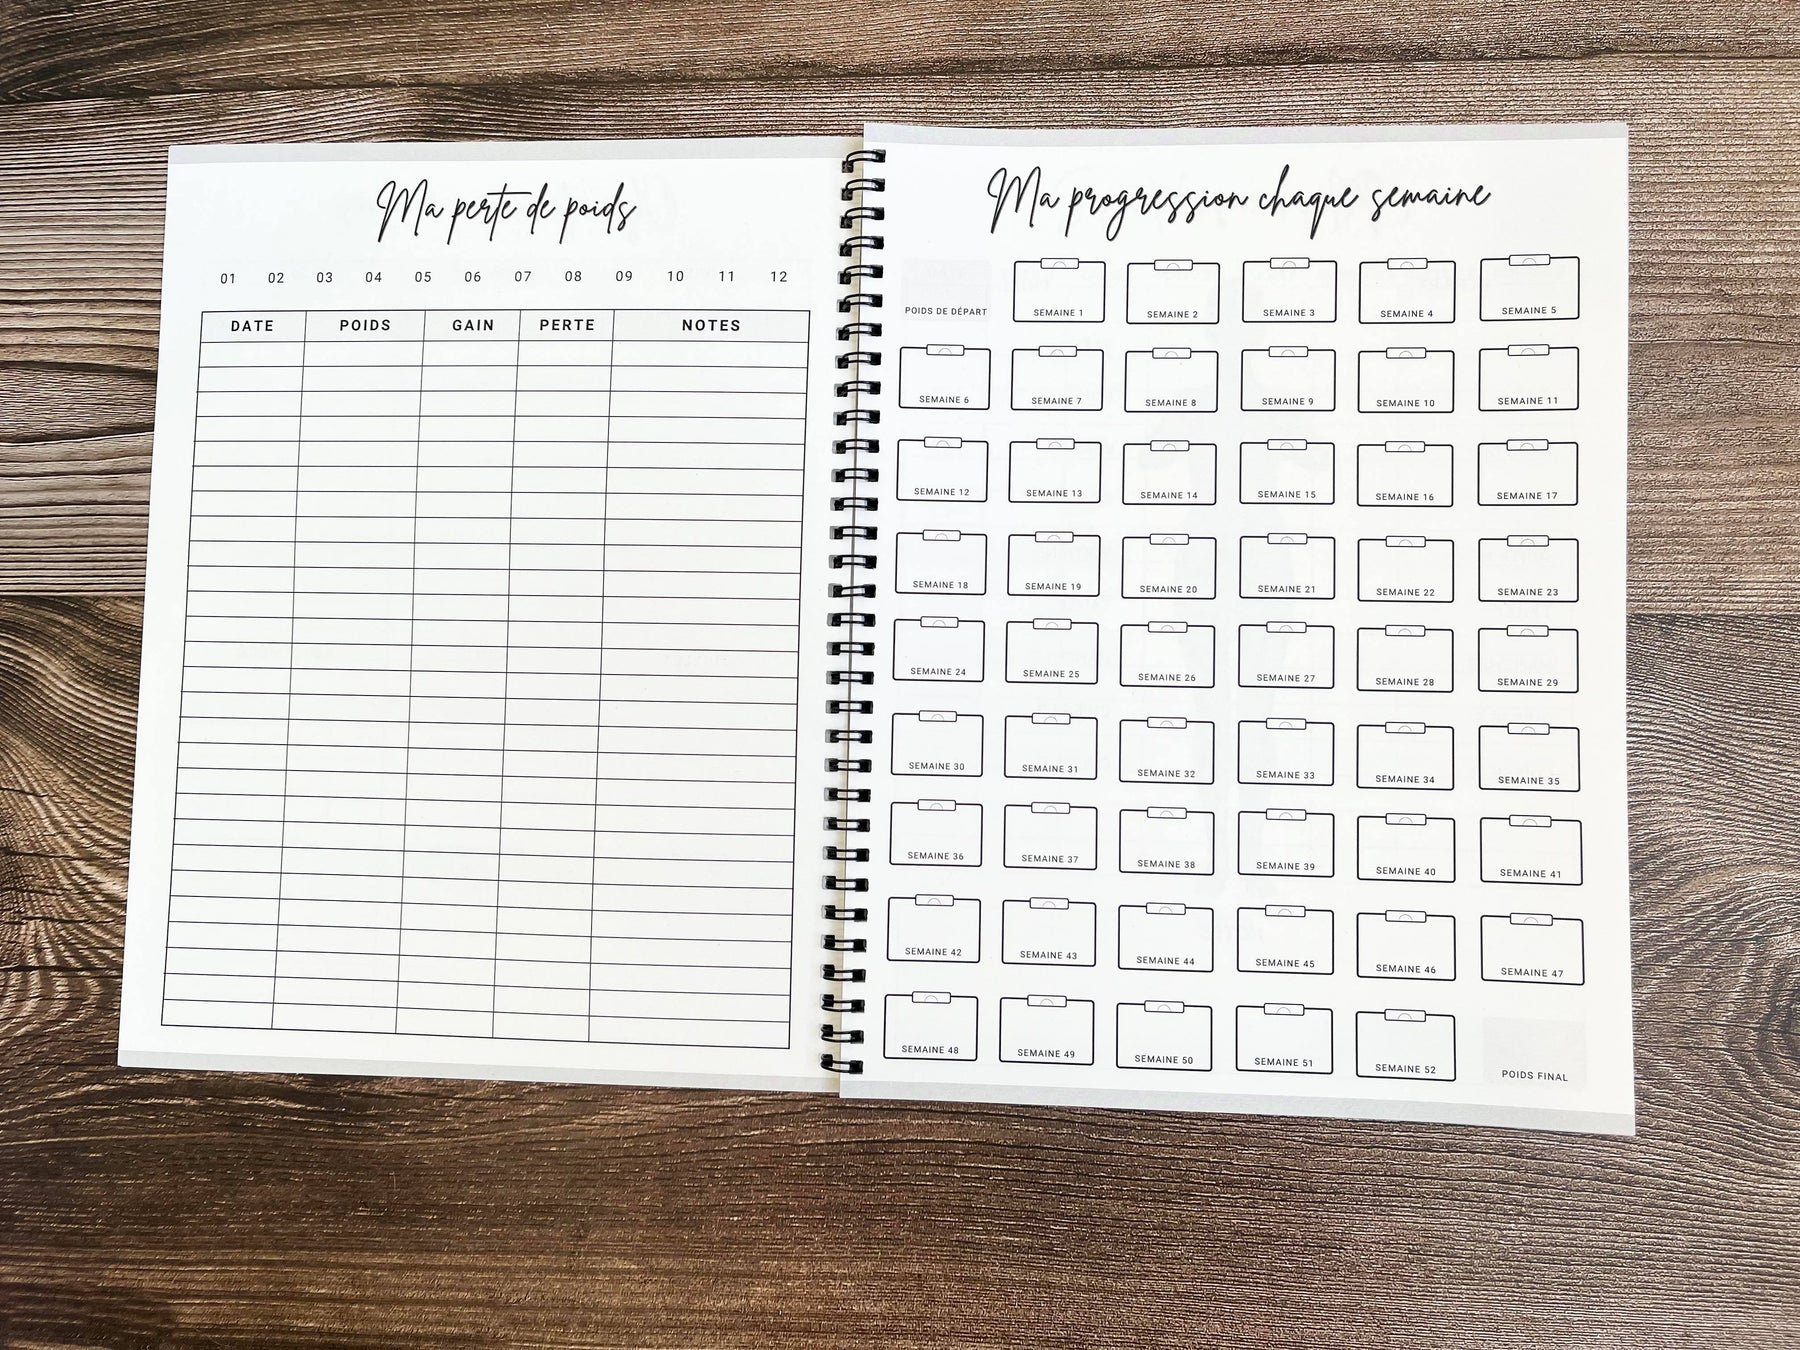 Ma perte de poids
01 02 03 04 05 06 07 08 09 10 11 12
DATE POIDS GAIN PERTE NOTES
Ma progression chaque semaine
POIDS DE DÉPART SEMAINE 1 SEMAINE 2 SEMAINE 3 SEMAINE 4 SEMAINE 5
SEMAINE 6 SEMAINE 7 SEMAINE 8 SEMAINE 9 SEMAINE 10 SEMAINE 11
SEMAINE 12 SEMAINE 13 SEMAINE 14 SEMAINE 15 SEMAINE 16 SEMAINE 17
SEMAINE 18 SEMAINE 19 SEMAINE 20 SEMAINE 21 SEMAINE 22 SEMAINE 23
SEMAINE 24 SEMAINE 25 SEMAINE 26 SEMAINE 27 SEMAINE 28 SEMAINE 29
SEMAINE 30 SEMAINE 31 SEMAINE 32 SEMAINE 33 SEMAINE 34 SEMAINE 35
SEMAINE 36 SEMAINE 37 SEMAINE 38 SEMAINE 39 SEMAINE 40 SEMAINE 41
SEMAINE 42 SEMAINE 43 SEMAINE 44 SEMAINE 45 SEMAINE 46 SEMAINE 47
SEMAINE 48 SEMAINE 49 SEMAINE 50 SEMAINE 51 SEMAINE 52 POIDS FINAL